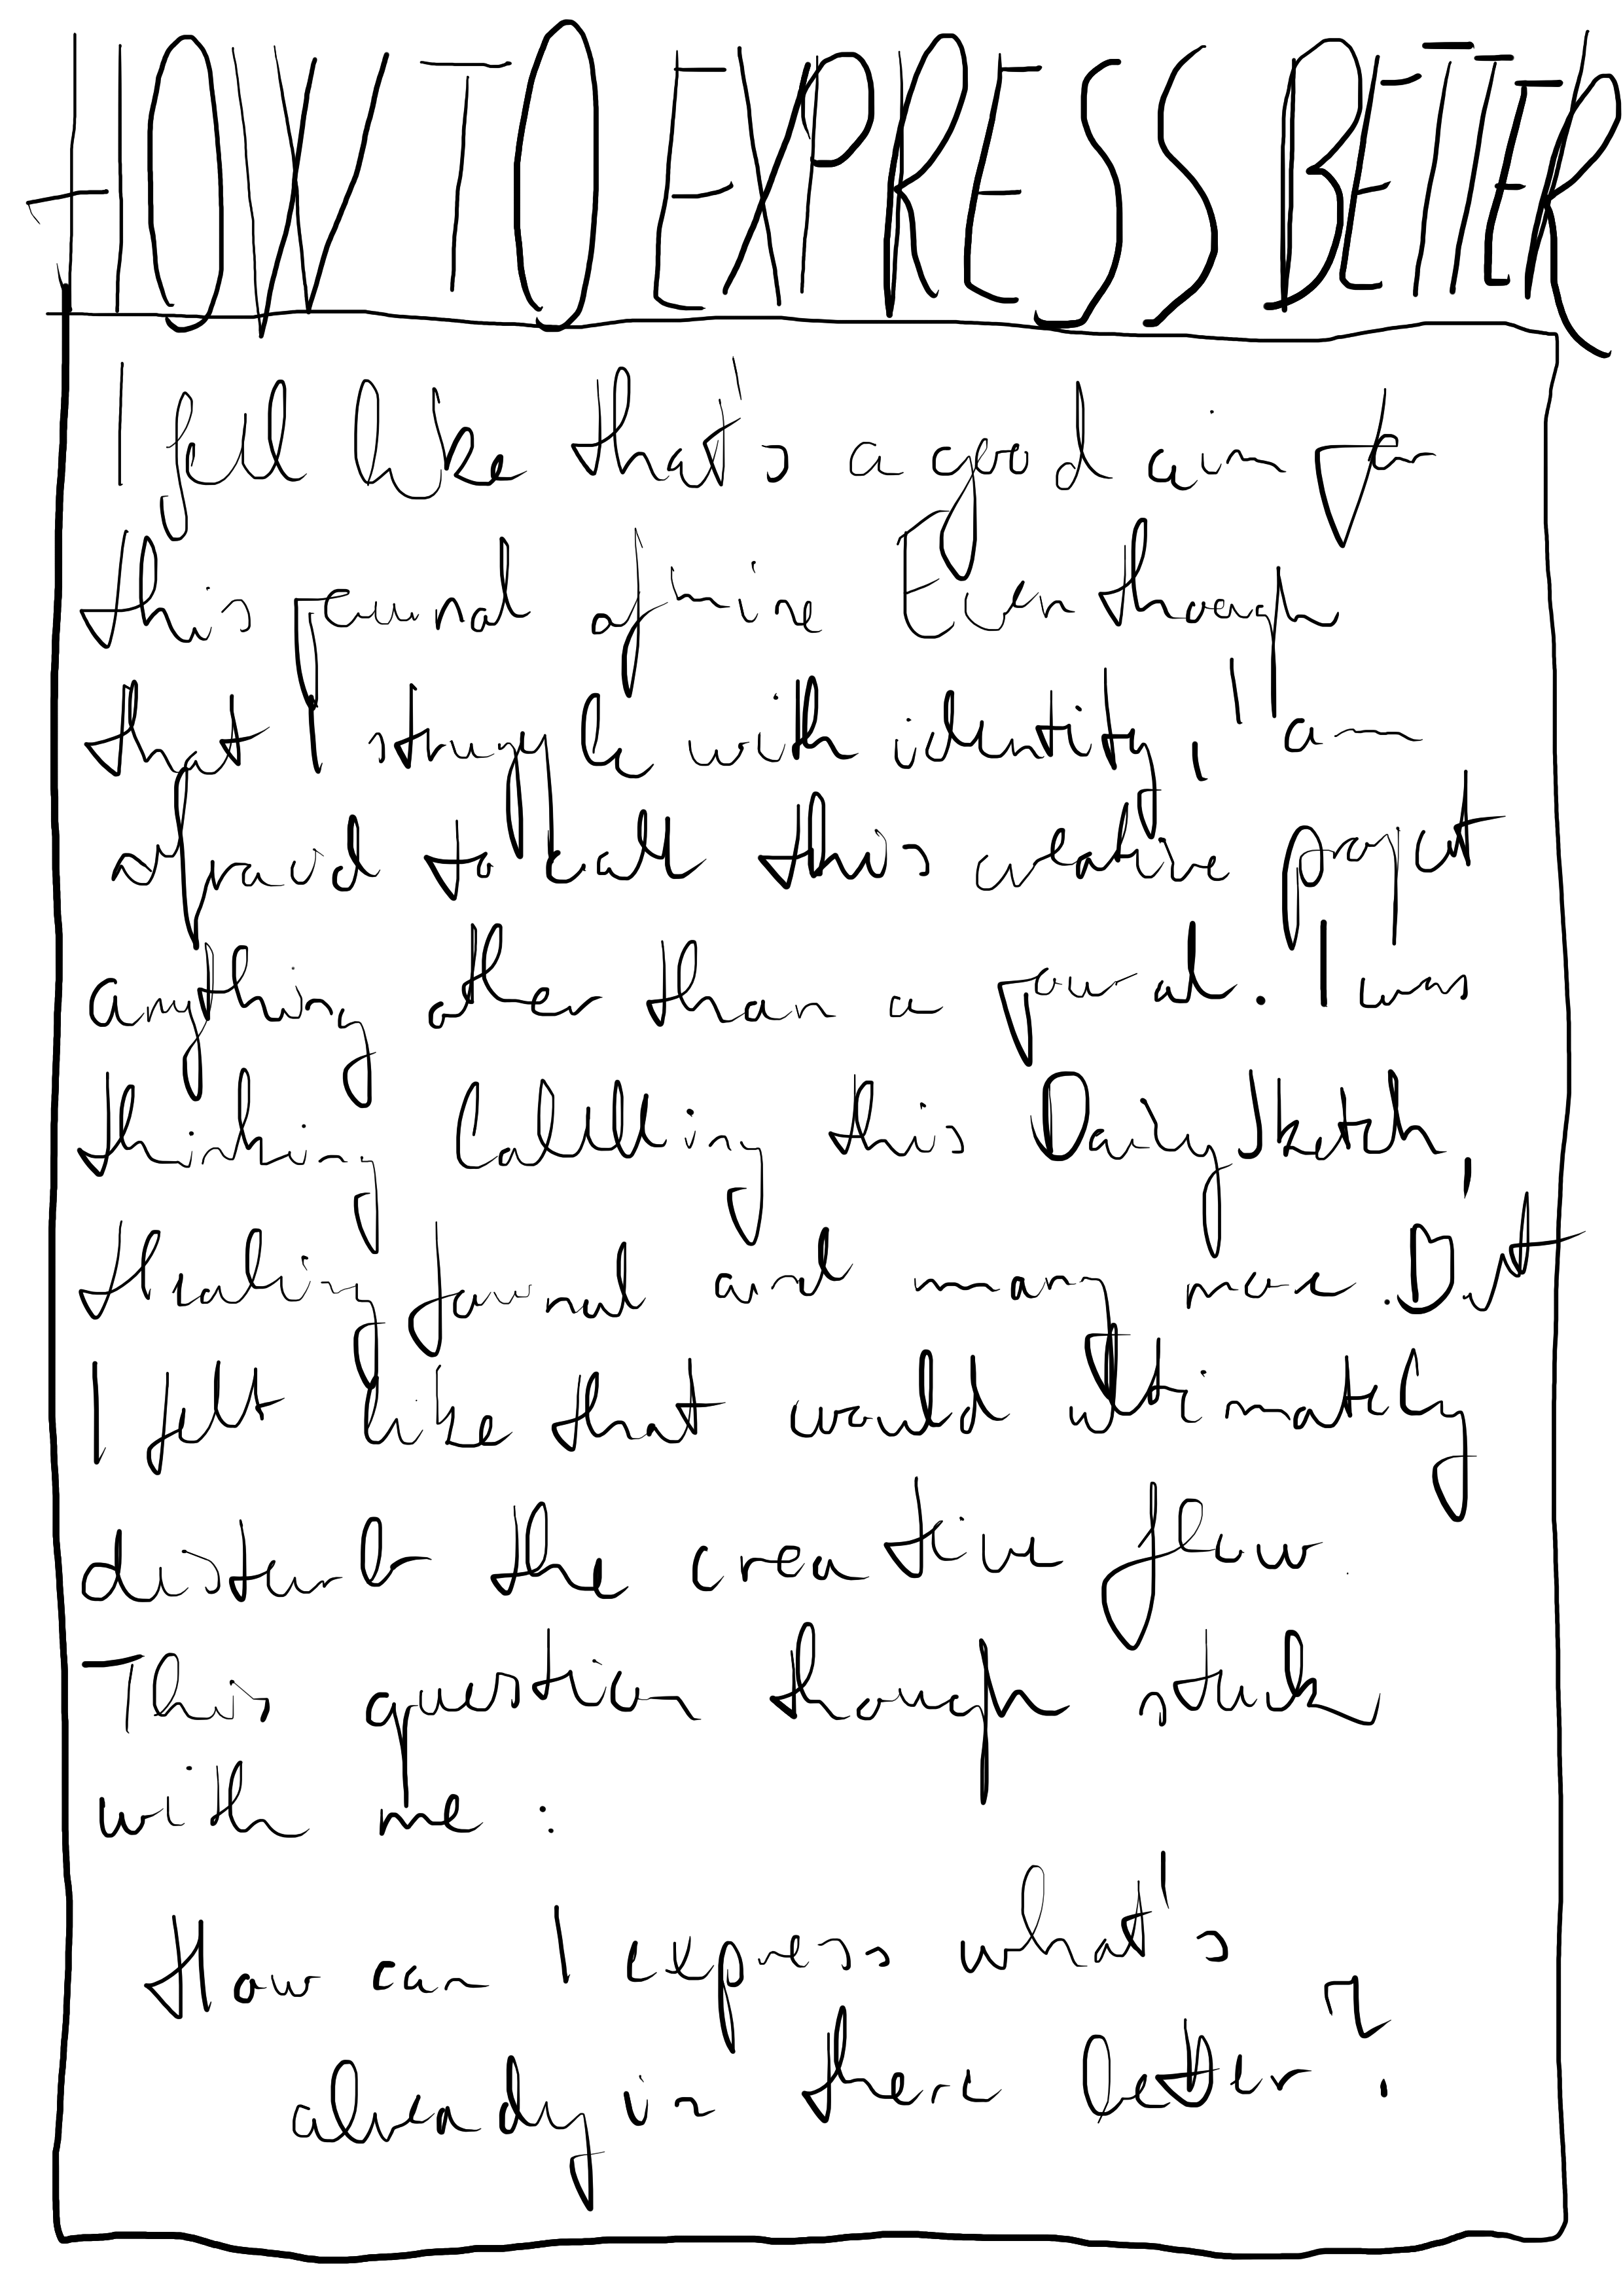 HOW TO EXPRESS BETTER
I feel like that's a good aim for
this journal of mine Even though
that I struggle with identity, I am
afraid to call this creative project
anything other than a journal. I was
thinking Callling this Dairy Sketch,
Healing Journal and many more. But
I felt like that would ultimately
disturb the creative flow.
This question though stuck
with me:
How can I express what's
already in there better?